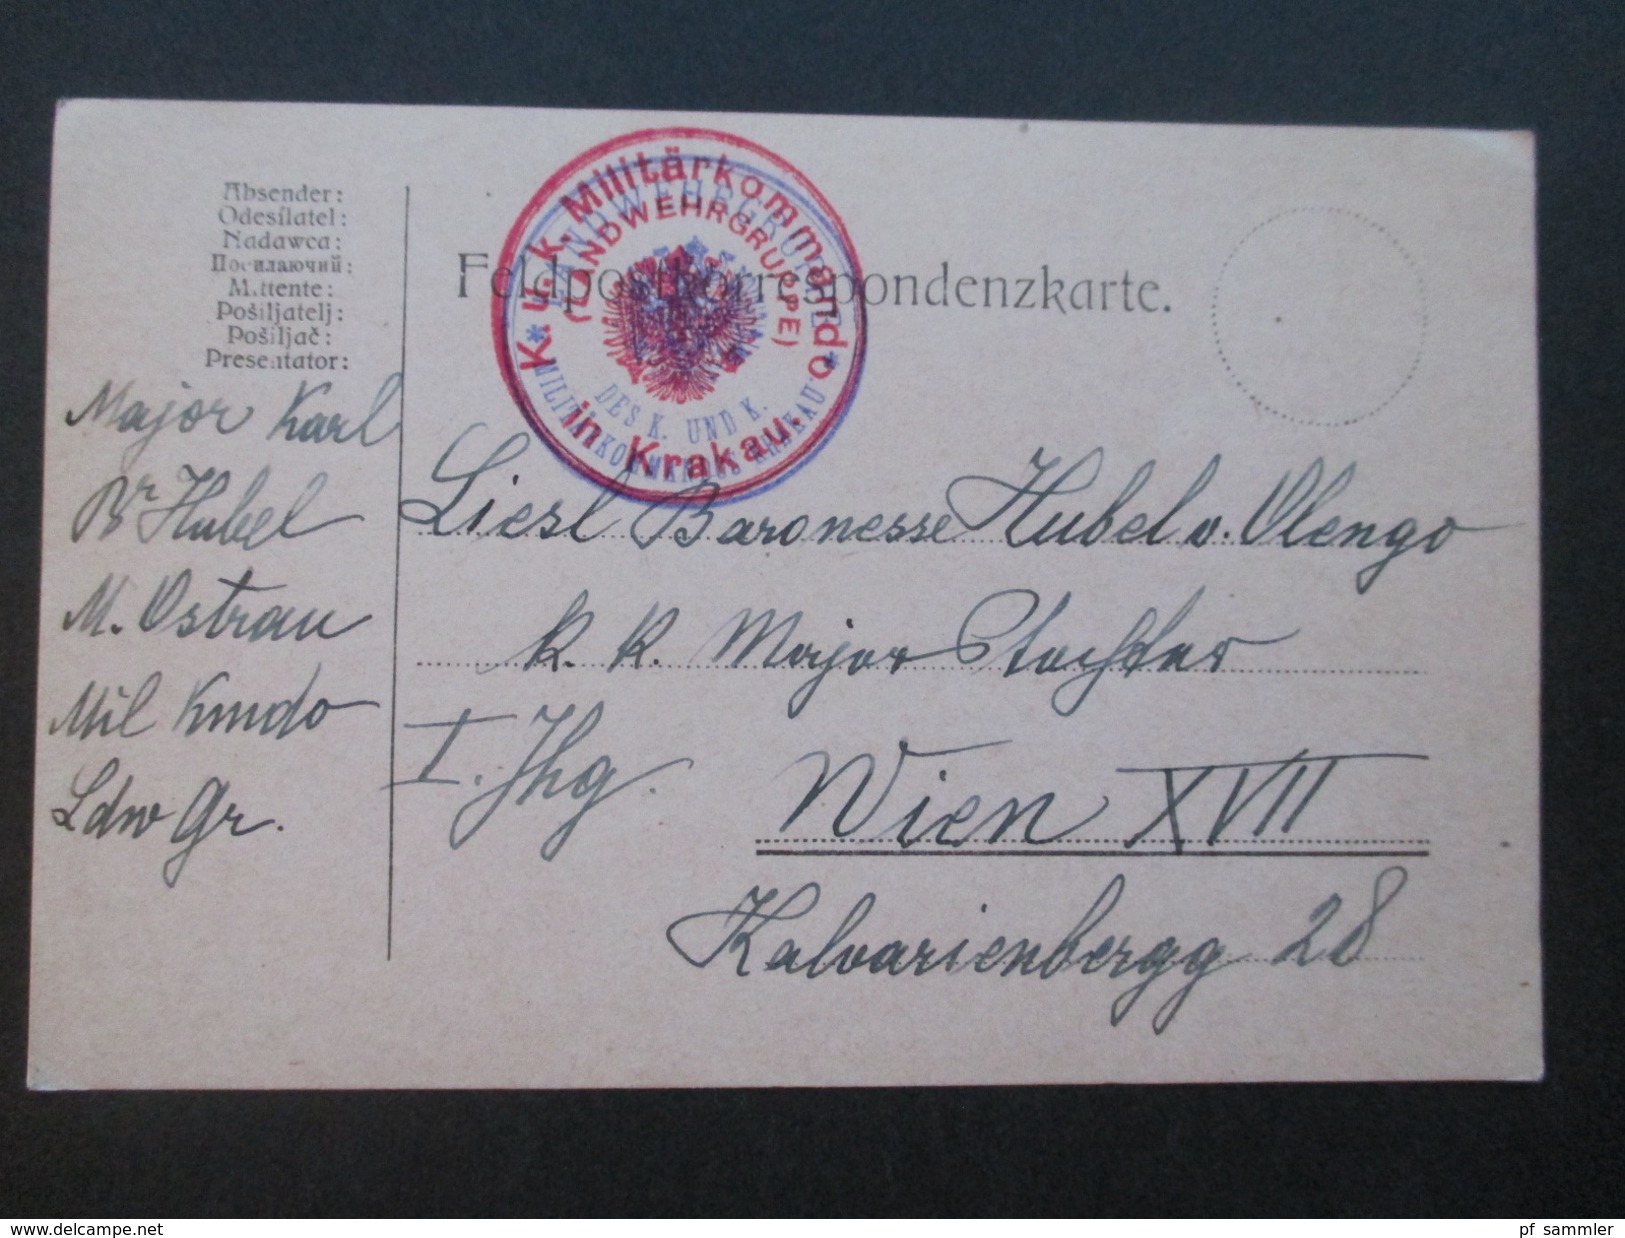 Absender:
Odesílatel:
Nadawca:
Посилаючий:
Mittente:
Pošiljatelj:
Pošiljač:
Presentator:
Major Karl
Br Hubel
M. Ostrau
Mil Kmdo
Ldw Gr.
Feldpostkorrespondenzkarte.
K. u. k. Militärkommando
(LANDWEHRGRUPPE)
in Krakau.
LANDWEHRGRUPPE
DES K. UND K.
MILITÄRKOMMANDOS KRAKAU
Liesl Baronesse Hubel v. Olengo
k. k. Major Tochter
I. Jhg.
Wien XVII
Kalvarienbergg 28
delcampe.net
pf_sammler